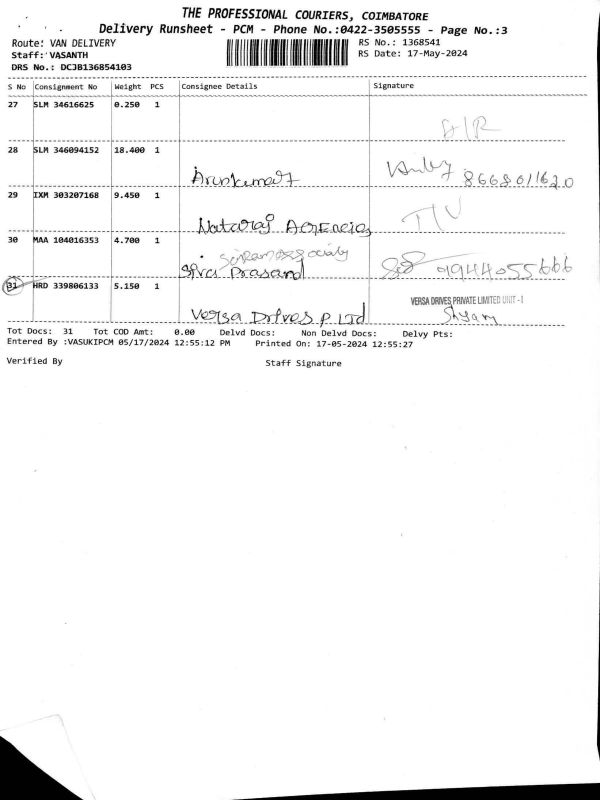 THE PROFESSIONAL COURIERS, COIMBATORE
Delivery Runsheet - PCM - Phone No.:0422-3505555 - Page No.:3
Route: VAN DELIVERY RS No.: 1368541
Staff: VASANTH RS Date: 17-May-2024
DRS No.: DCJB136854103
S No Consignment No Weight PCS Consignee Details Signature
27 SLM 34616625 0.250 1
28 SLM 346094152 18.400 1
Arunkumar 8668011620
29 IXM 303207168 9.450 1
Nataraj Agencies
30 MAA 104016353 4.700 1
Siva Prasand 9944055666
31 HRD 339806133 5.150 1
VERSA DRIVES PRIVATE LIMITED UNIT - I
Versa Drives P Ltd Shyam
Tot Docs: 31 Tot COD Amt: 0.00 Delvd Docs: Non Delvd Docs: Delvy Pts:
Entered By :VASUKIPCM 05/17/2024 12:55:12 PM Printed On: 17-05-2024 12:55:27
Verified By Staff Signature